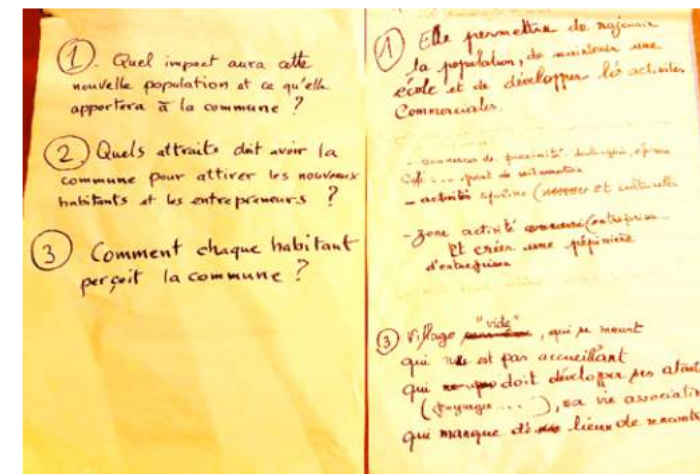 1. Quel impact aura cette
nouvelle population et ce qu'elle
apportera à la commune ?
2 Quels attraits doit avoir la
commune pour attirer les nouveaux
habitants et les entrepreneurs ?
3 Comment chaque habitant
perçoit la commune ?
1 Elle permettra de rajeunir
la population, de maintenir une
école et de développer les activités
Commerciales.
- commerces de proximité, boulangerie, épicerie
Café ...
- activités sportives ( et culturelles
- zone activité (entreprises...
Et créer une pépinière
d'entreprises
3 Village "vide", qui se meurt
qui est pas accueillant
qui doit développer ses atouts
(paysages ....), sa vie associative
qui manque de lieux de rencontre